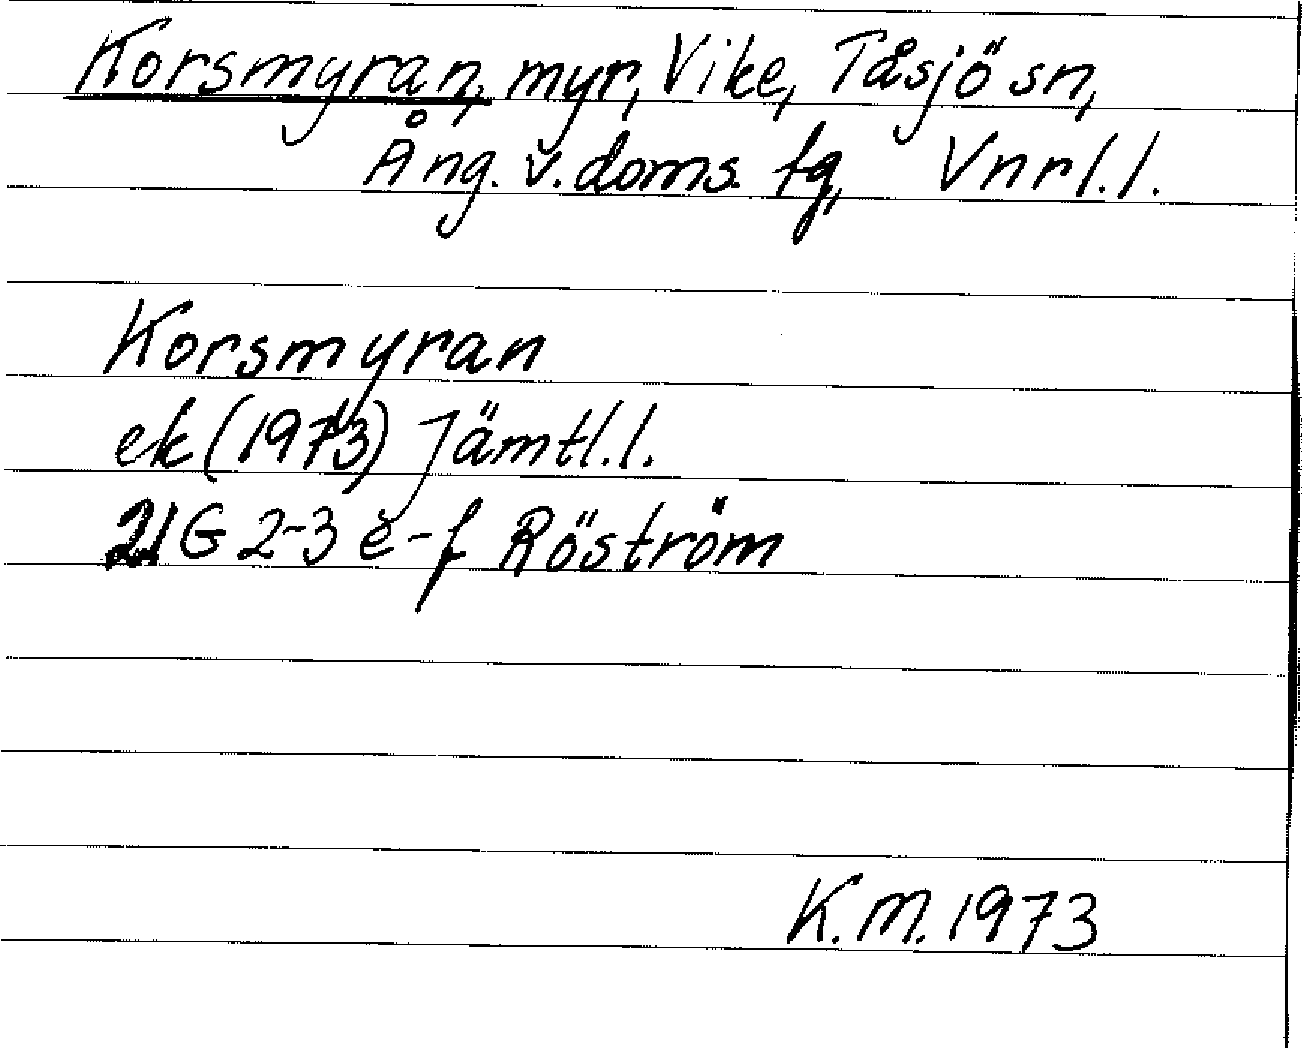 Korsmyran, myr, Vike, Tåsjö sn,
Ång. v. doms. fg, Vnrl. l.
Korsmyran
ek (1973) Jämtl. l.
21G 2-3 e-f Röström
K.M. 1973